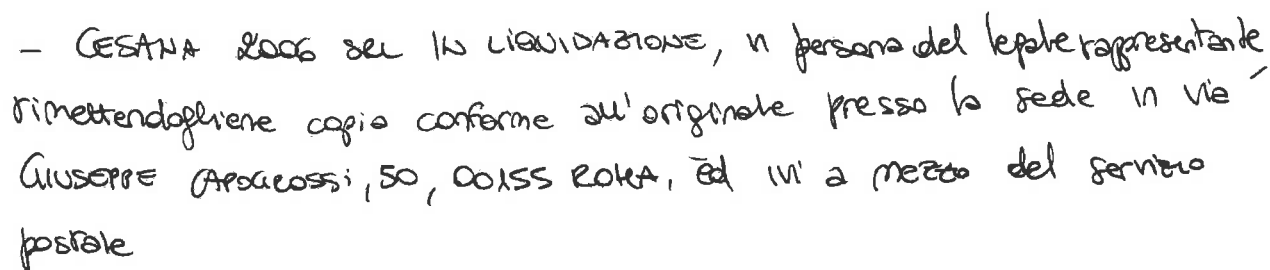 - CESANA 2006 SRL IN LIQUIDAZIONE, in persona del legale rappresentante,
rimettendogliene copia conforme all'originale presso la sede in via
GIUSEPPE CAPOGROSSI, 50, 00155 ROMA, ed ivi a mezzo del servizio
postale